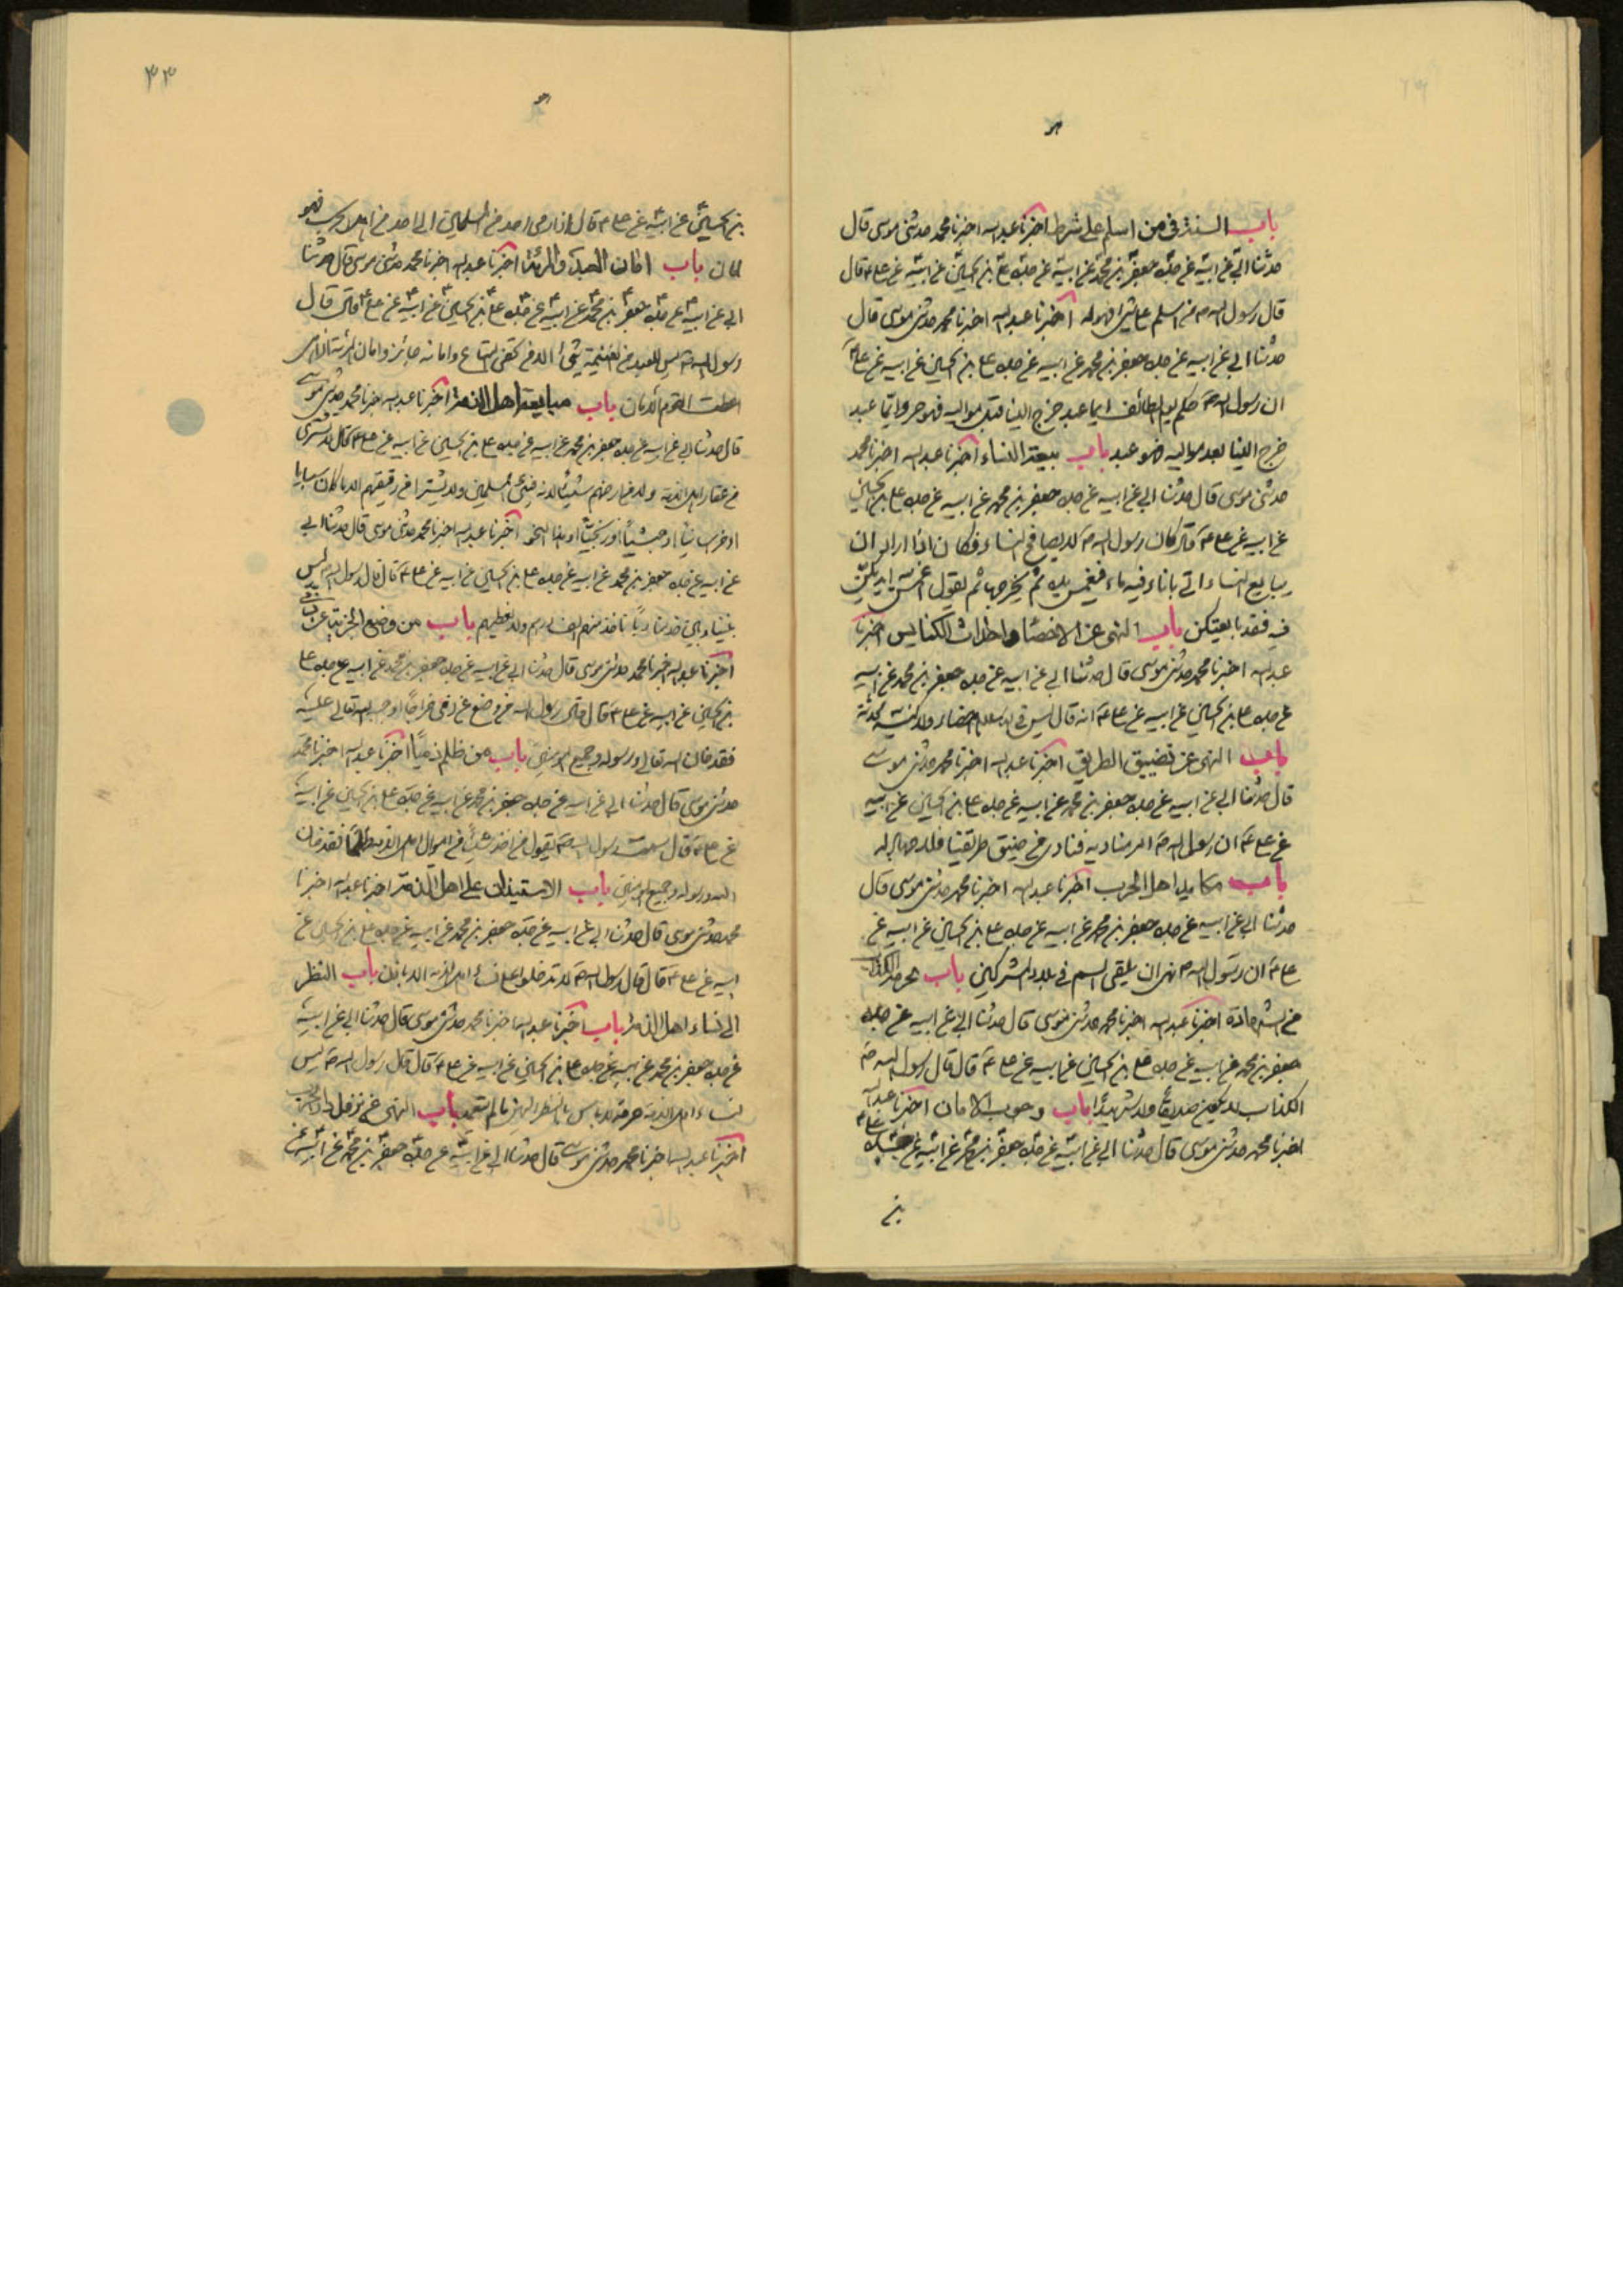 باب السنة في من اسلم على شرط اخبرنا عبد الله اخبرنا محمد حدثني موسى قال
حدثنا ابي عن ابيه عن جده جعفر بن محمد عن ابيه عن جده علي بن الحسين عن ابيه عن علي ع قال
قال رسول الله ص من اسلم على شئ فهو له اخبرنا عبد الله اخبرنا محمد حدثني موسى قال
حدثنا ابي عن ابيه عن جده جعفر بن محمد عن ابيه عن جده علي بن الحسين عن ابيه عن علي ع
ان رسول الله ص حكم يوم الطائف ايما عبد خرج الينا قبل مواليه فهو حر وايما عبد
خرج الينا بعد مواليه فهو عبد باب بيعة النساء اخبرنا عبد الله اخبرنا محمد
حدثني موسى قال حدثنا ابي عن ابيه عن جده جعفر بن محمد عن ابيه عن جده علي بن الحسين
عن ابيه عن علي ع قال كان رسول الله ص لا يصافح النساء فكان اذا اراد ان
يبايع النساء اتى باناء فيه ماء فيغمس يده ثم يخرجها ثم يقول اغمسن ايديكن
فيه فقد بايعتكن باب النهى عن الاخصاء واحداث الكنايس اخبرنا
عبد الله اخبرنا محمد حدثني موسى قال حدثنا ابي عن ابيه عن جده جعفر بن محمد عن ابيه
عن جده علي بن الحسين عن ابيه عن علي ع انه قال ليس في الاسلام اخصاء ولا كنيسة محدثة
باب النهى عن تضييق الطريق اخبرنا عبد الله اخبرنا محمد حدثني موسى
قال حدثنا ابي عن ابيه عن جده جعفر بن محمد عن ابيه عن جده علي بن الحسين عن ابيه
عن علي ع ان رسول الله ص امر مناديه فنادى من ضيق طريقنا فلا جهاد له
باب مكايد اهل الحرب اخبرنا عبد الله اخبرنا محمد حدثني موسى قال
حدثنا ابي عن ابيه عن جده جعفر بن محمد عن ابيه عن جده علي بن الحسين عن ابيه عن
علي ع ان رسول الله ص نهى ان يلقى السم في بلاد المشركين باب
اخبرنا عبد الله اخبرنا محمد حدثني موسى قال حدثنا ابي عن ابيه عن جده
جعفر بن محمد عن ابيه عن جده علي بن الحسين عن ابيه عن علي ع قال قال رسول الله ص
الكذاب لا يكون صديقا ولا شهيدا باب وجوب الامان اخبرنا عبد الله
اخبرنا محمد حدثني موسى قال حدثنا ابي عن ابيه عن جده جعفر بن محمد عن ابيه عن جده علي
بن
٣٣
بن الحسين عن ابيه عن علي ع قال اذا اومى احد من المسلمين الى احد من اهل الحرب فهو
امان باب امان العبد والمرئة اخبرنا عبد الله اخبرنا محمد حدثني موسى قال حدثنا
ابي عن ابيه عن جده جعفر بن محمد عن ابيه عن جده علي بن الحسين عن ابيه عن علي ع قال قال
رسول الله ص ليس للعبد من الغنيمة شئ الا من المتاع وامانه جائز وامان المرئة اذا هي
اعطت القوم الامان باب مبايعة اهل الذمة اخبرنا عبد الله اخبرنا محمد حدثني موسى
قال حدثنا ابي عن ابيه عن جده جعفر بن محمد عن ابيه عن جده علي بن الحسين عن ابيه عن علي ع قال لا يشترى
من عقار اهل الذمة ولا من ارضهم شيئا لانه فئ المسلمين ولا يشترا من رقيقهم الا ما كان سبايا
او خراسانيا او حبشيا او زنجيا او هذا النحو اخبرنا عبد الله اخبرنا محمد حدثني موسى قال حدثنا ابي
عن ابيه عن جده جعفر بن محمد عن ابيه عن جده علي بن الحسين عن ابيه عن علي ع قال قال رسول الله ص ليس
ناخذ منهم الف درهم ولا نعطيهم باب من وضع الجزية عن ذمى
اخبرنا عبد الله اخبرنا محمد حدثني موسى قال حدثنا ابي عن ابيه عن جده جعفر بن محمد عن ابيه عن جده علي
بن الحسين عن ابيه عن علي ع قال قال رسول الله من وضع عن ذمى خراجا اوجبه الله تعالى عليه
فقد خان الله تعالى ورسوله وجميع المؤمنين باب من ظلم ذميا اخبرنا عبد الله اخبرنا محمد
حدثني موسى قال حدثنا ابي عن ابيه عن جده جعفر بن محمد عن ابيه عن جده علي بن الحسين عن ابيه
عن علي ع قال سمعت رسول الله ص يقول من اخذ شيئا من اموال اهل الذمة ظلما فقد خان
الله ورسوله وجميع المؤمنين باب الاستيذان على اهل الذمة اخبرنا عبد الله اخبرنا
محمد حدثني موسى قال حدثنا ابي عن ابيه عن جده جعفر بن محمد عن ابيه عن جده علي بن الحسين عن
ابيه عن علي ع قال قال رسول الله ص لا تدخلوا على نساء اهل الذمة الا باذن باب النظر
الى نساء اهل الذمة باب اخبرنا عبد الله اخبرنا محمد حدثني موسى قال حدثنا ابي عن ابيه
عن جده جعفر بن محمد عن ابيه عن جده علي بن الحسين عن ابيه عن علي ع قال قال رسول الله ص ليس
لنساء اهل الذمة حرمة لا باس بالنظر اليهن ما لم يتعمد باب النهى عن نزول دار الحرب
اخبرنا عبد الله اخبرنا محمد حدثني موسى قال حدثنا ابي عن ابيه عن جده جعفر بن محمد عن ابيه عن